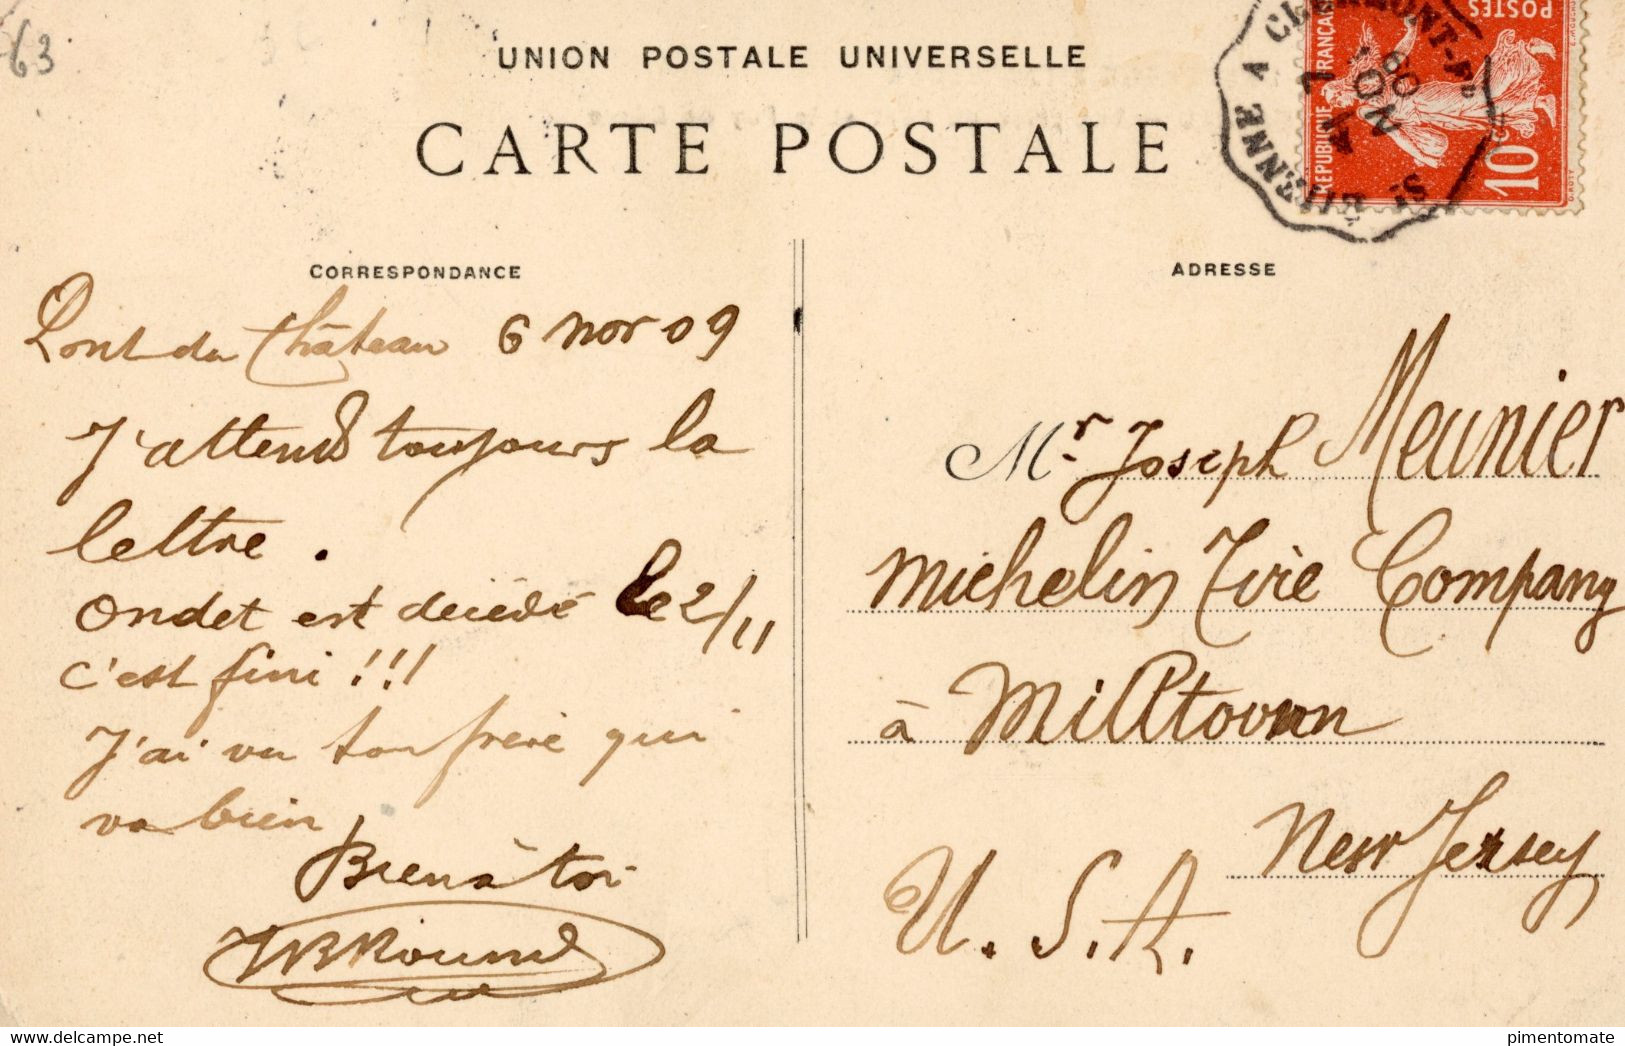 63
UNION POSTALE UNIVERSELLE
CARTE POSTALE
ST ÉTIENNE A CLERMONT-FD
NOV.
09
POSTES
RÉPUBLIQUE FRANÇAISE
10c
O. ROTY
CORRESPONDANCE
Pont du Château 6 nov 09
J'attends toujours la
lettre.
Ondet est décédé le 2/11
c'est fini !!!
J'ai vu ton frère qui
va bien
Bien à toi
ADRESSE
Mr Joseph Meunier
Michelin Tire Company
à Milltown
New Jersey
U.S.A.
pimentomate